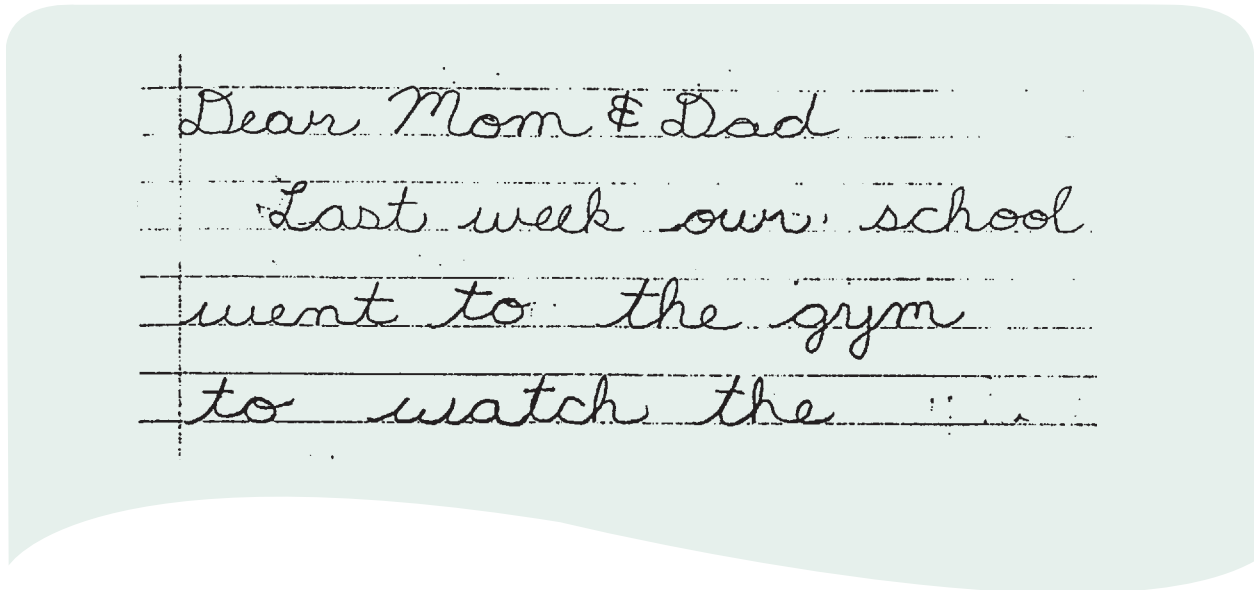 Dear Mom & Dad
Last week our school
went to the gym
to watch the